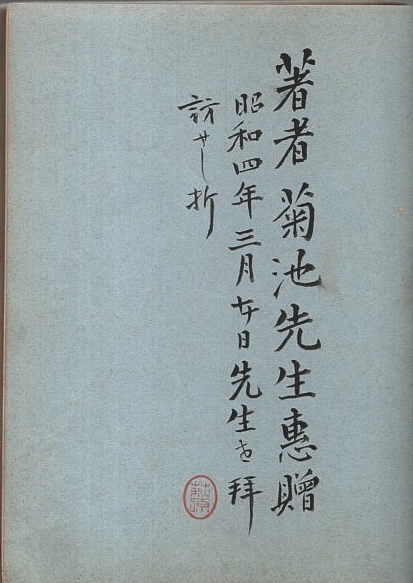 著者菊池先生惠贈
昭和四年三月廿日先生を拜
訪せし折
萩原